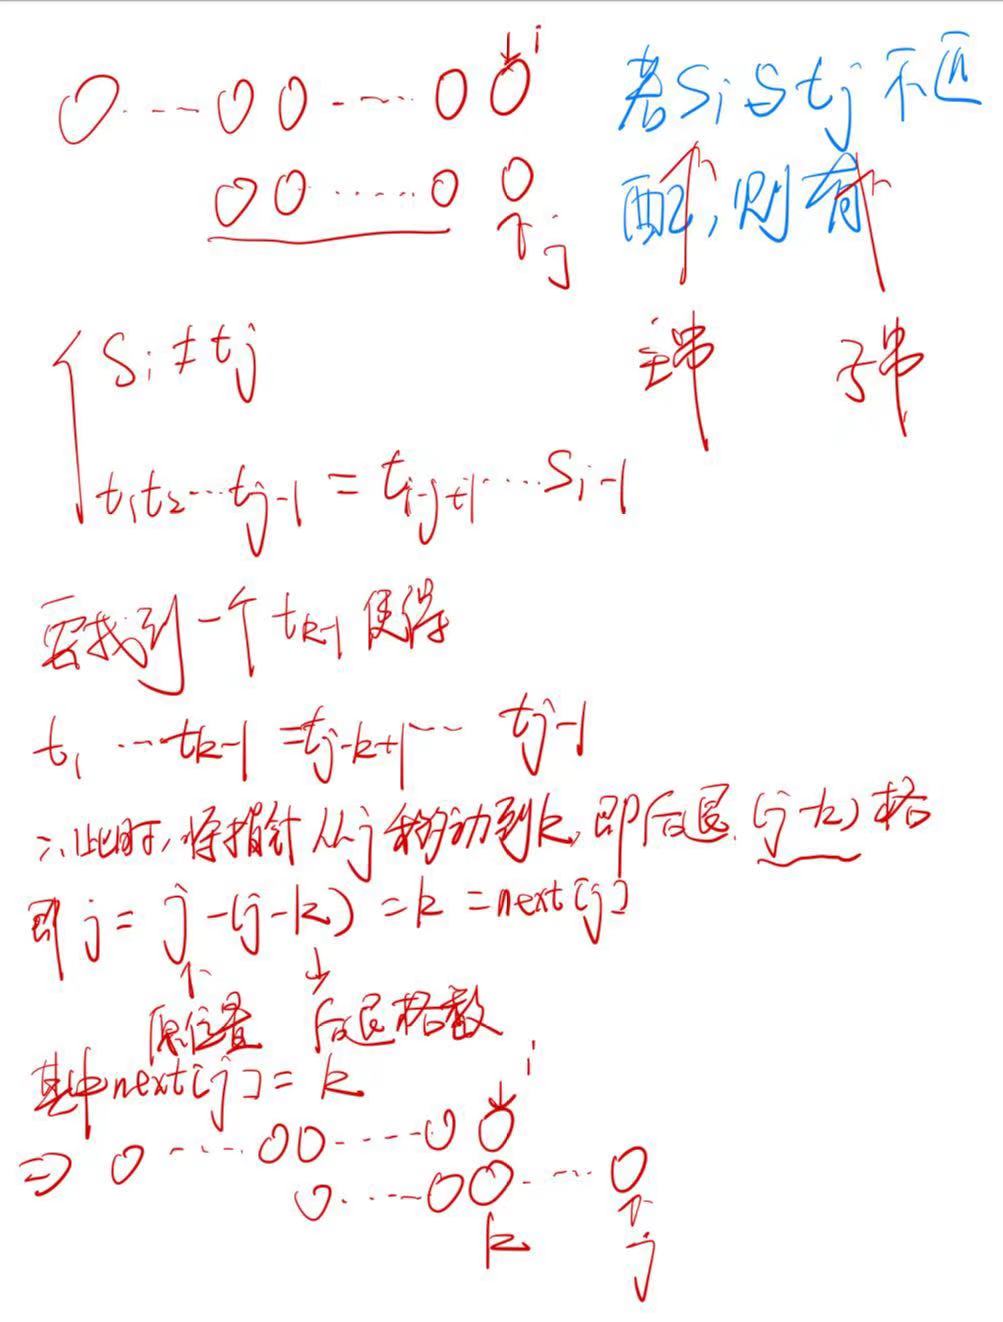 i
若Si与tj不匹
配,则有
j
主串 子串
Si≠tj
t1t2…tj-1 = ti-j+1……Si-1
要找到一个tk-1使得
t1 …tk-1 =tj-k+1… tj-1
∴此时,将指针从j移动到k,即后退(j-k)格
即 j= j-(j-k) =k =next[j]
原位置 后退格数
其中next[j]= k
i
⇒
k
j